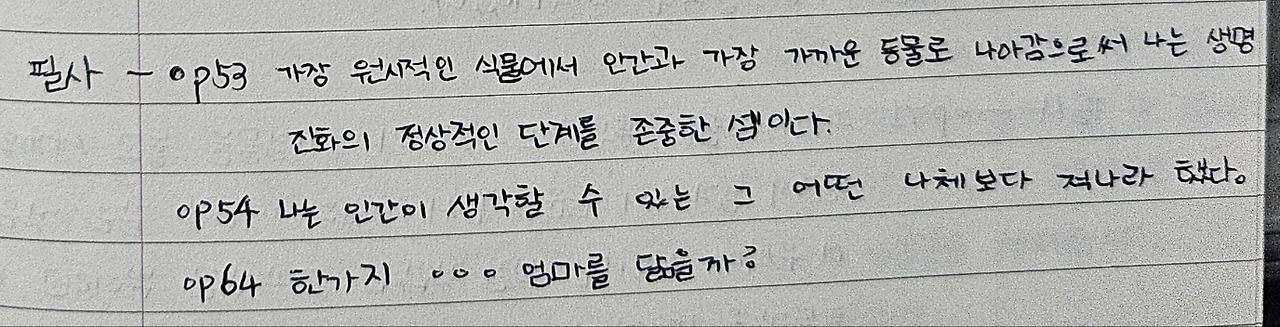 필사 - ∘p53 가장 원시적인 식물에서 인간과 가장 가까운 동물로 나아감으로써 나는 생명
진화의 정상적인 단계를 존중한 셈이다.
∘p54 나는 인간이 생각할 수 있는 그 어떤 나체보다 적나라 했다。
∘p64 한가지 ∘∘∘ 엄마를 닮을까?